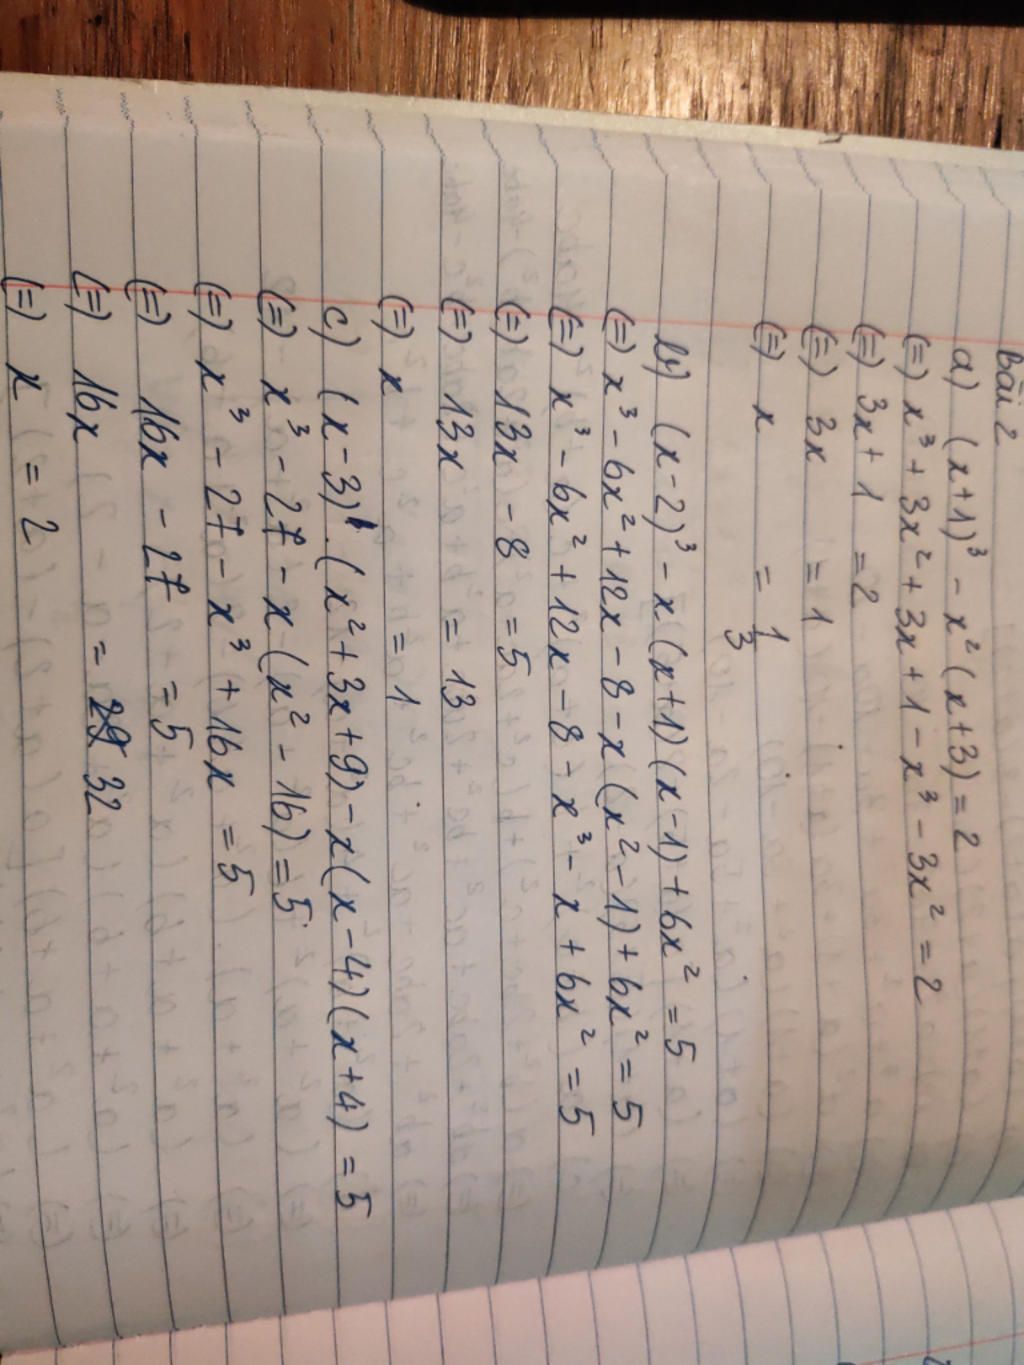 Bài 2
a) (x+1)³ - x² (x+3) = 2
(=) x³ + 3x² + 3x + 1 - x³ - 3x² = 2
(=) 3x + 1 = 2
(=) 3x = 1
(=) x = 1/3
b) (x-2)³ - x (x+1) (x-1) + 6x² = 5
(=) x³ - 6x² + 12x - 8 - x (x² - 1) + 6x² = 5
(=) x³ - 6x² + 12x - 8 - x³ - x + 6x² = 5
(=) 13x - 8 = 5
(=) 13x = 13
(=) x = 1
c) (x-3) . (x² + 3x + 9) - x (x-4) (x+4) = 5
(=) x³ - 27 - x (x² - 16) = 5
(=) x³ - 27 - x³ + 16x = 5
(=) 16x - 27 = 5
(=) 16x = 32
(=) x = 2